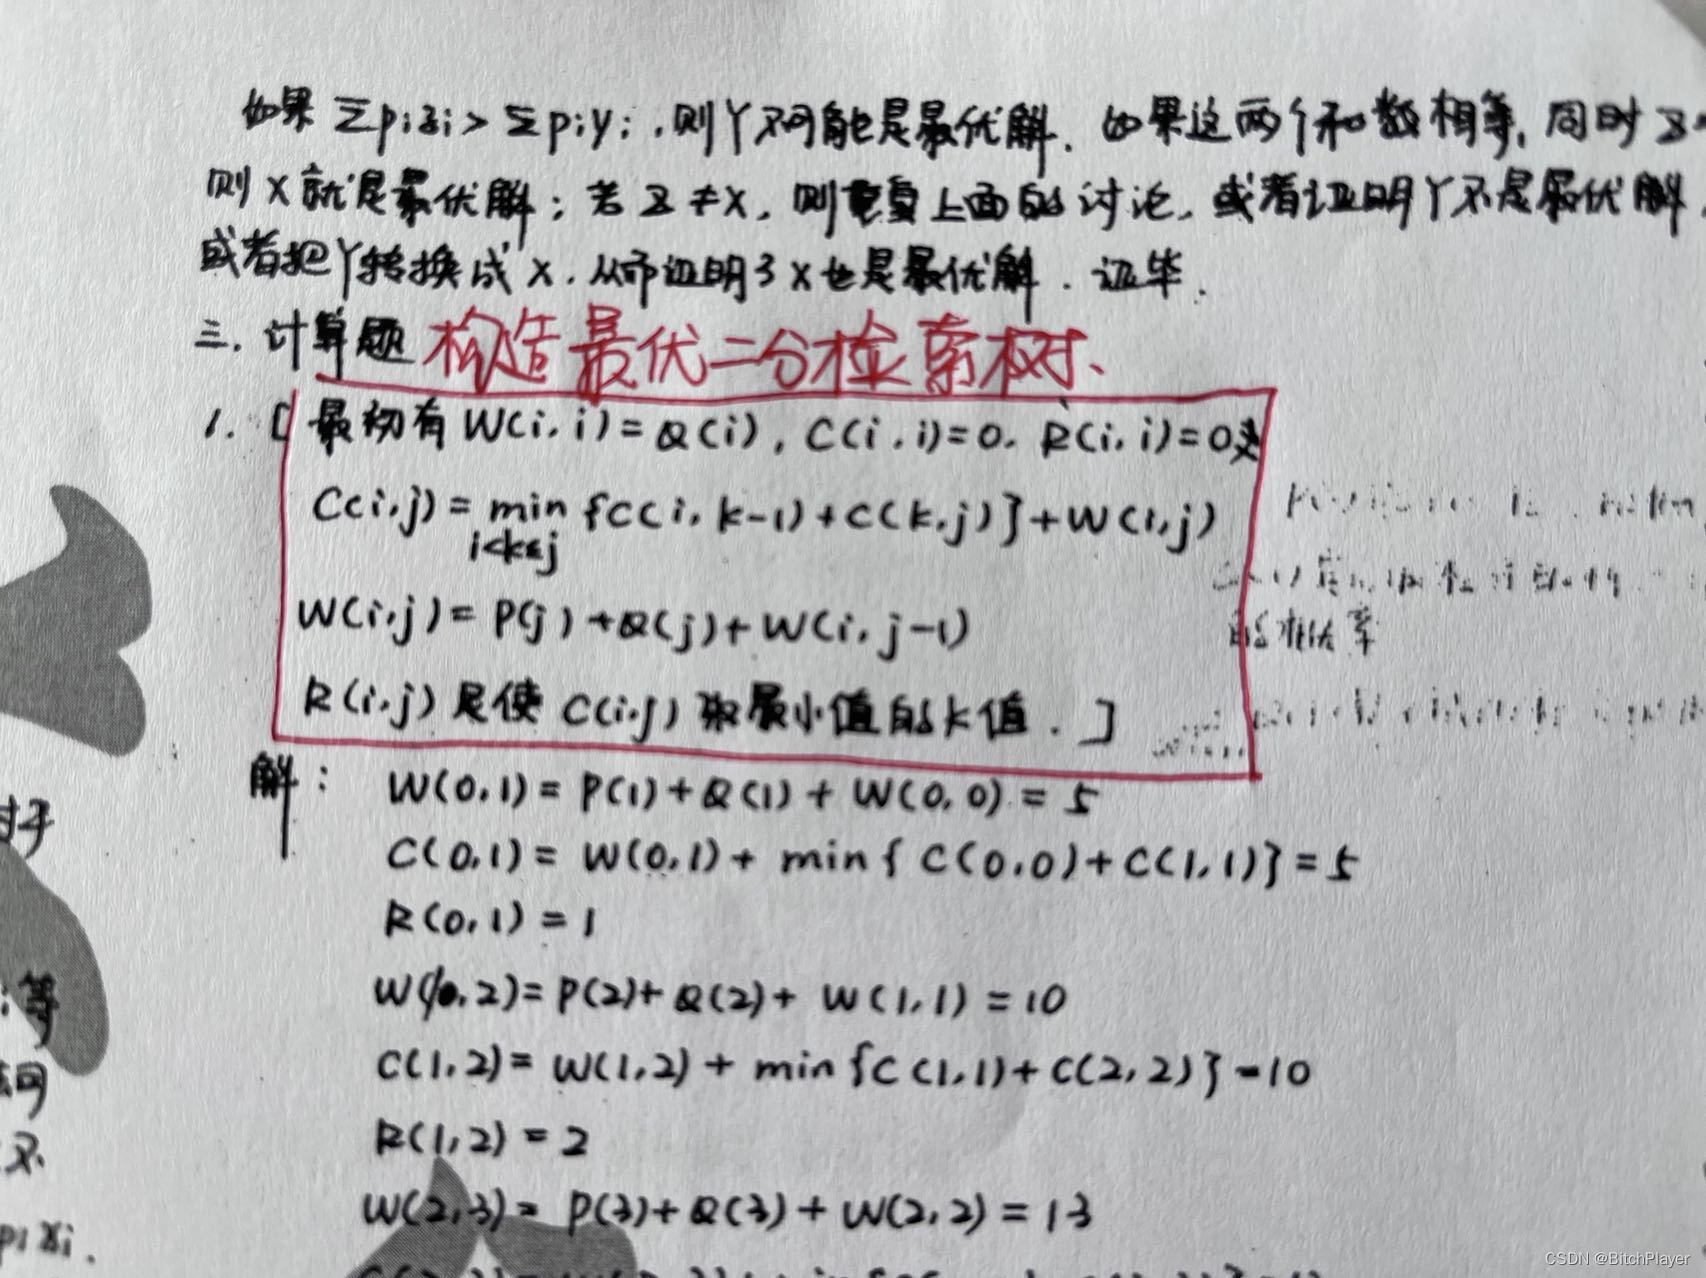 如果 Σpizi > Σpiyi, 则Y不可能是最优解. 如果这两个和数相等, 同时 Z
则X就是最优解; 若 Z≠X, 则重复上面的讨论, 或者证明Y不是最优解,
或者把Y转换成X, 从而证明了X也是最优解. 证毕.
三. 计算题 构造最优二分检索树、
1. [ 最初有 W(i,i)=Q(i), C(i,i)=0. R(i,i)=0
C(i,j) = min {C(i,k-1)+C(k,j)}+W(1,j)
i<k≤j
W(i,j)= P(j)+Q(j)+W(i,j-1)
R(i,j) 是使 C(i,j) 取最小值的k值. ]
的概率
解: W(0,1)= P(1)+Q(1)+W(0,0) = 5
C(0,1)= W(0,1)+ min{ C(0,0)+C(1,1)} = 5
对于
R(0,1) = 1
W(0,2)= P(2)+Q(2)+ W(1,1) = 10
等
C(1,2)= W(1,2) + min{C(1,1)+C(2,2)} = 10
R(1,2) = 2
W(2,3)= P(3)+Q(3)+W(2,2) = 13
pixi.
CSDN @BitchPlayer